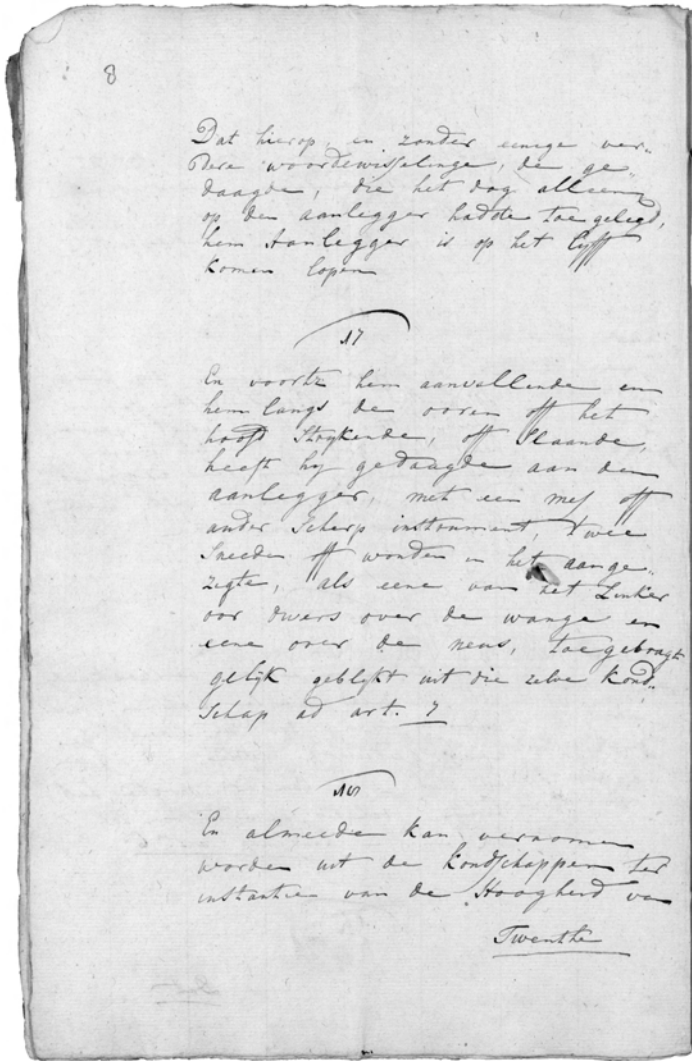 8
Dat hierop, en zonder eenige ver„
dere woordewisselinge, de ge„
daagde, die het dog alleen
op den aanlegger hadde toegelegd,
hem Aanlegger is op het lyff
komen lopen
17
En voorts hem aanvallende en
hem langs de ooren off het
hoofd Strykende, off Slaande,
heeft hy gedaagde aan den
aanlegger, met een mes off
ander Scherp instrument, twee
Sneeden off wonden in het aange„
zigte, als eene van het Linker
oor dwers over de wange en
eene over de neus, toegebragt
gelijk geblykt uit die zelve kond„
Schap ad art. 7
18
En almeede kan vernomen
worden uit de kondschappen ter
instantie van de Hoogheid van
Twenthe